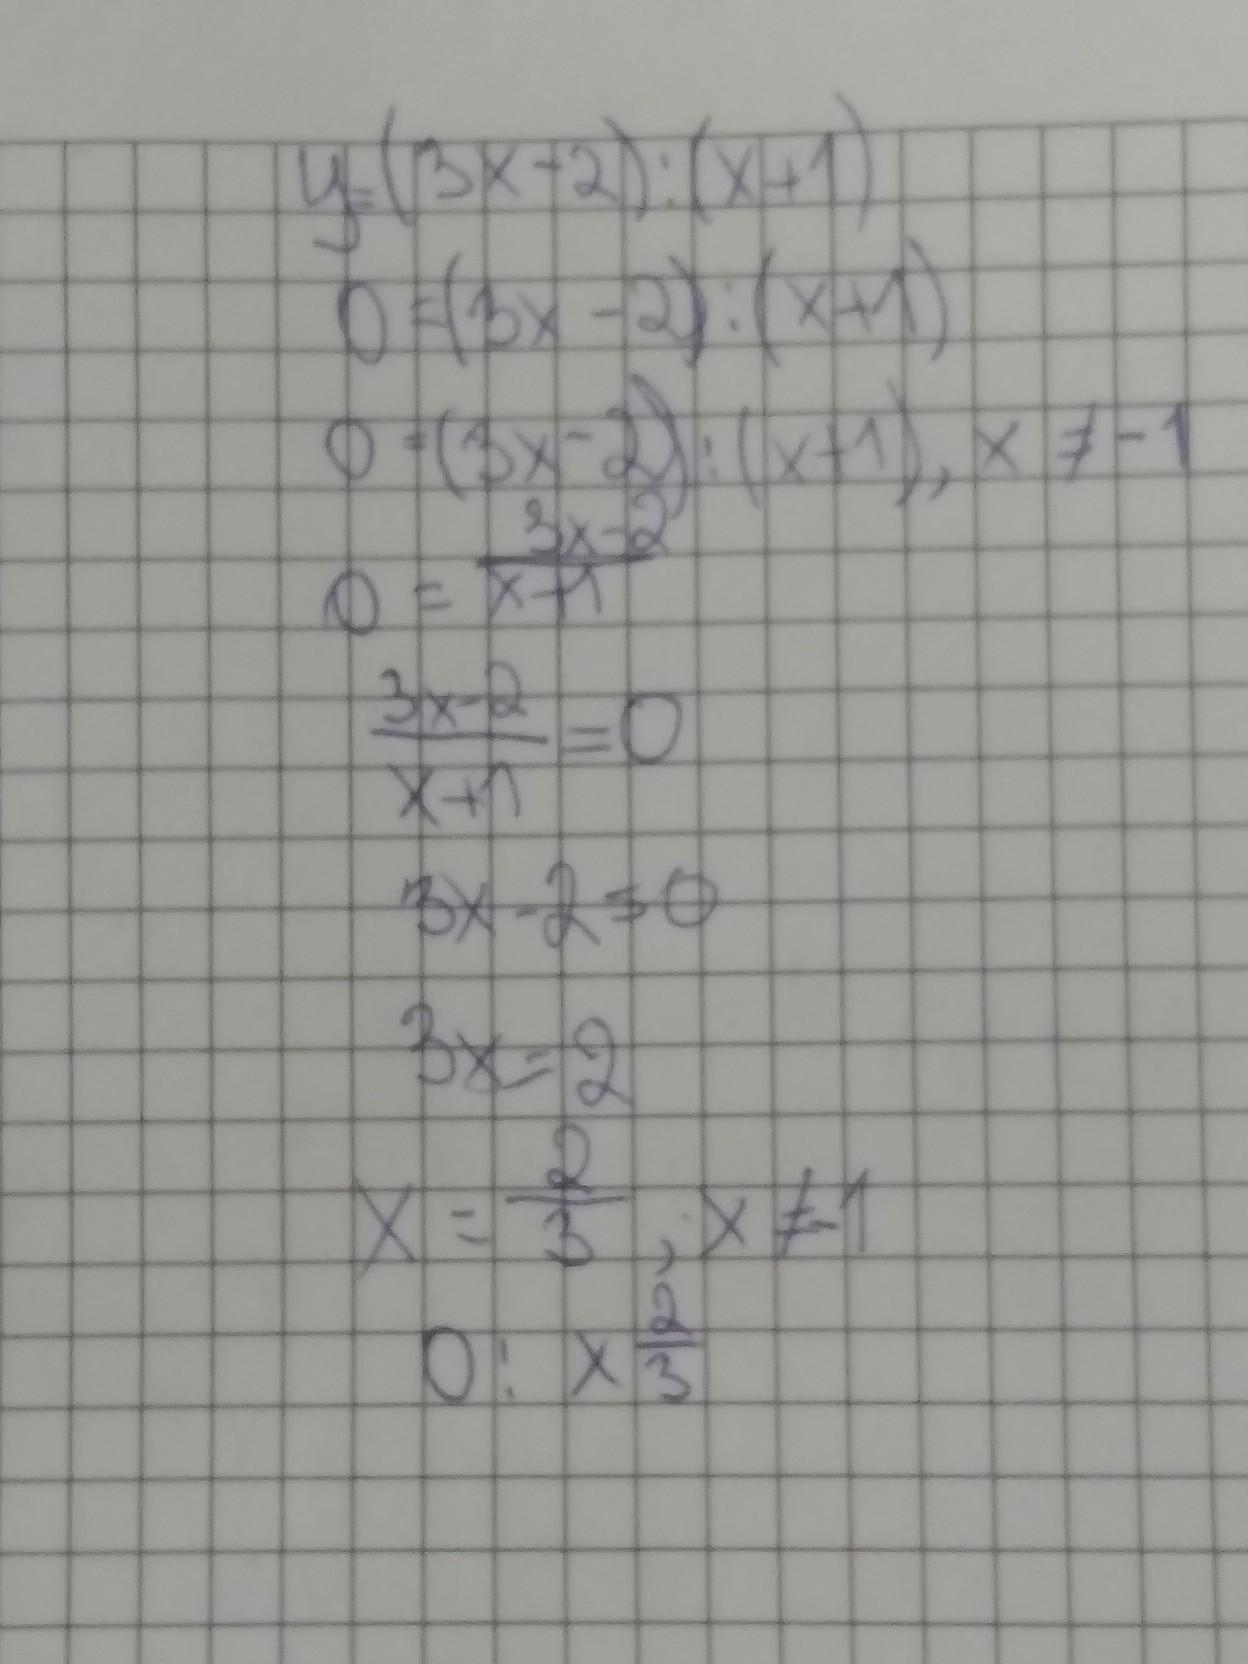 y=(3x-2):(x+1)
0=(3x-2):(x+1)
0=(3x-2):(x+1), x≠-1
0 = \frac{3x-2}{x+1}
\frac{3x-2}{x+1}=0
3x-2=0
3x=2
x = \frac{2}{3}, x≠-1
0: x \frac{2}{3}